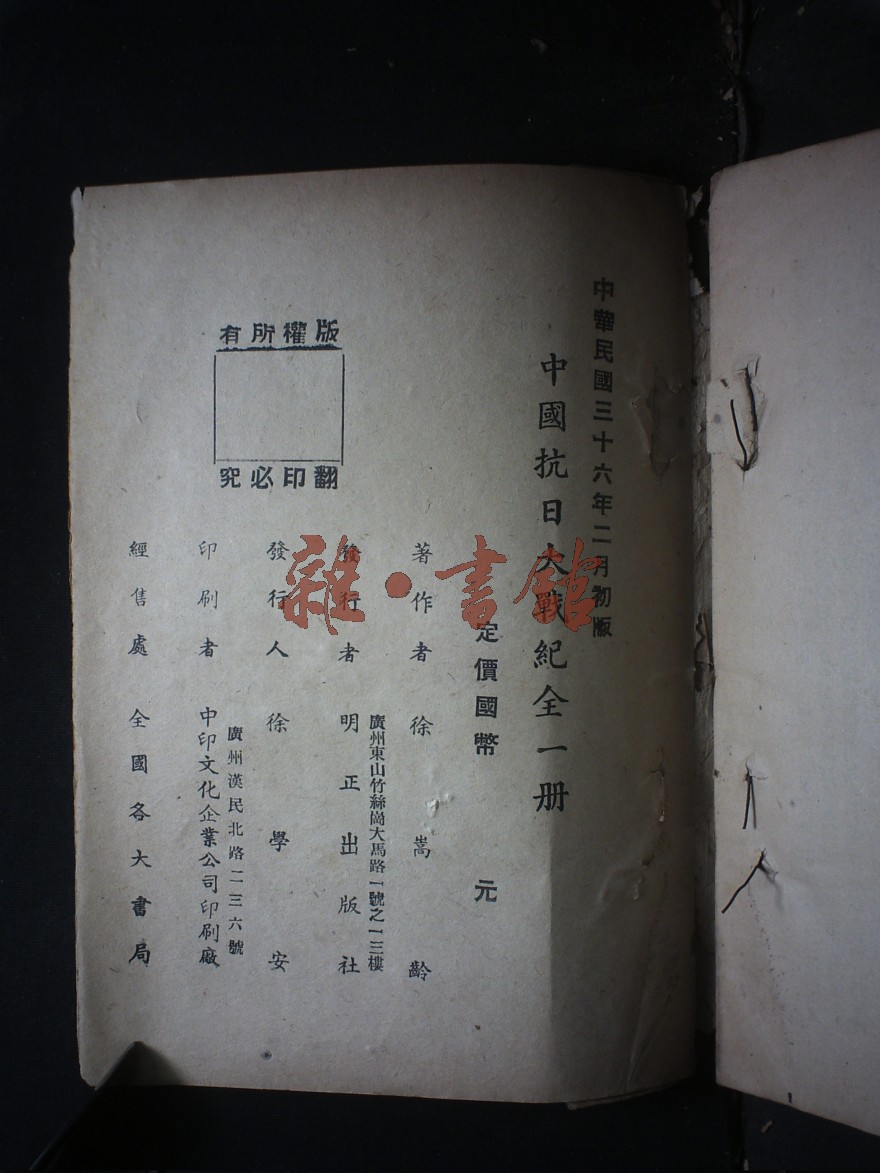 中華民國三十六年二月初版
中國抗日大戰紀全一册
定價國幣 元
著作者徐嵩齡
廣州東山竹絲崗大馬路一號之一三樓
發行者明正出版社
發行人徐學安
廣州漢民北路二三六號
印刷者中印文化企業公司印刷廠
經售處全國各大書局
版權所有
翻印必究
雜·書館